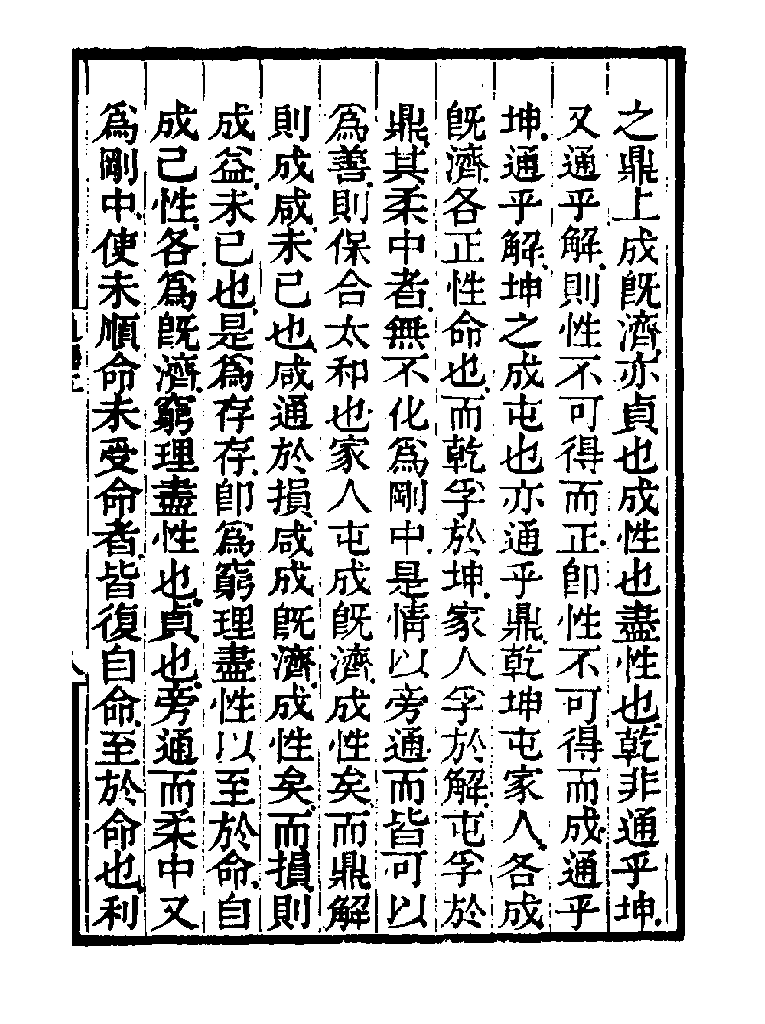 之鼎上成旣濟亦貞也成性也盡性也乾非通乎坤
又通乎解則性不可得而正卽性不可得而成通乎
坤通乎解坤之成屯也亦通乎鼎乾坤屯家人各成
旣濟各正性命也而乾孚於坤家人孚於解屯孚於
鼎其柔中者無不化爲剛中是情以旁通而皆可以
爲善則保合太和也家人屯成旣濟成性矣而鼎解
則成咸未已也咸通於損咸成旣濟成性矣而損則
成益未已也是爲存存卽爲窮理盡性以至於命自
成己性各爲旣濟窮理盡性也貞也旁通而柔中又
爲剛中使未順命未受命者皆復自命至於命也利